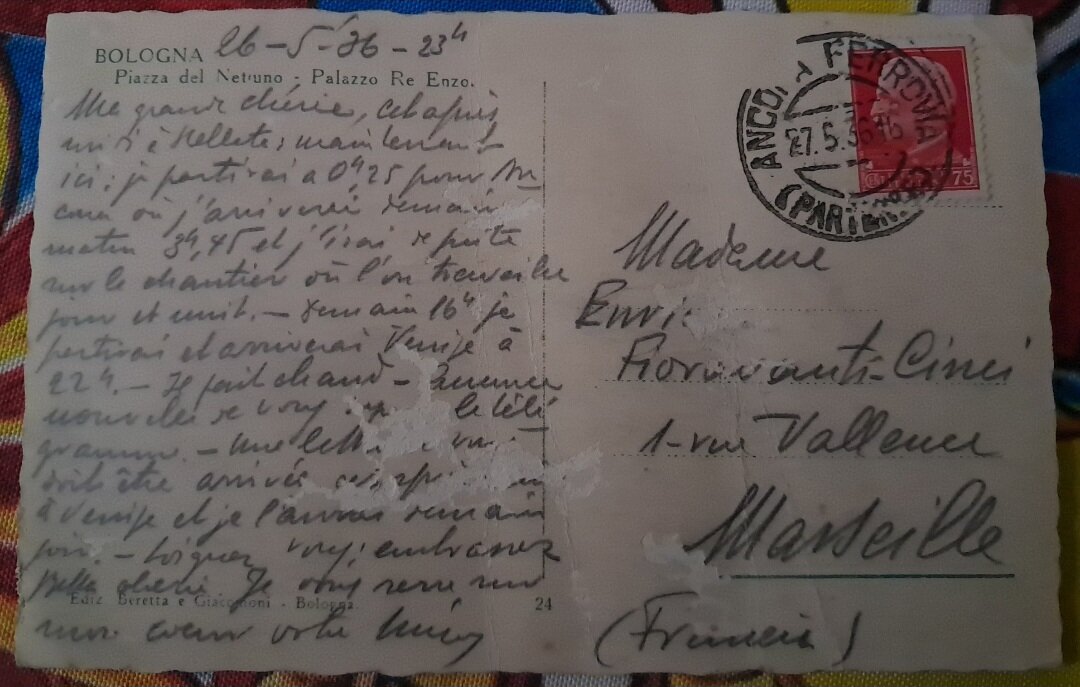 BOLOGNA 26-5-'36 - 23h
Piazza del Nettuno - Palazzo Re Enzo.
Ma grande chérie, cet après
midi à ; maintenant
ici; je partirai à 0h25 pour An
cona où j'arriverai demain
matin 3h,45 et j'irai de suite
sur le chantier où l'on travaille
jour et nuit. - Demain 16h je
partirai et arriverai Venise à
22h. - Il fait chaud - Aucune
nouvelle de vous le télé
gramme. - Une
doit être arrivée
à Venise et je l'aurai demain
soir. - Soignez vous; embrassez
Bella chérie. Je vous serre sur
mon cœur votre
Ediz. Beretta e Giacomoni - Bologna
24
ANCONA FERROVIA
27.5.36
(PARTENZE)
75
Madame
Fioravanti-Cinci
1-rue Vallence
Marseille
(Francia)